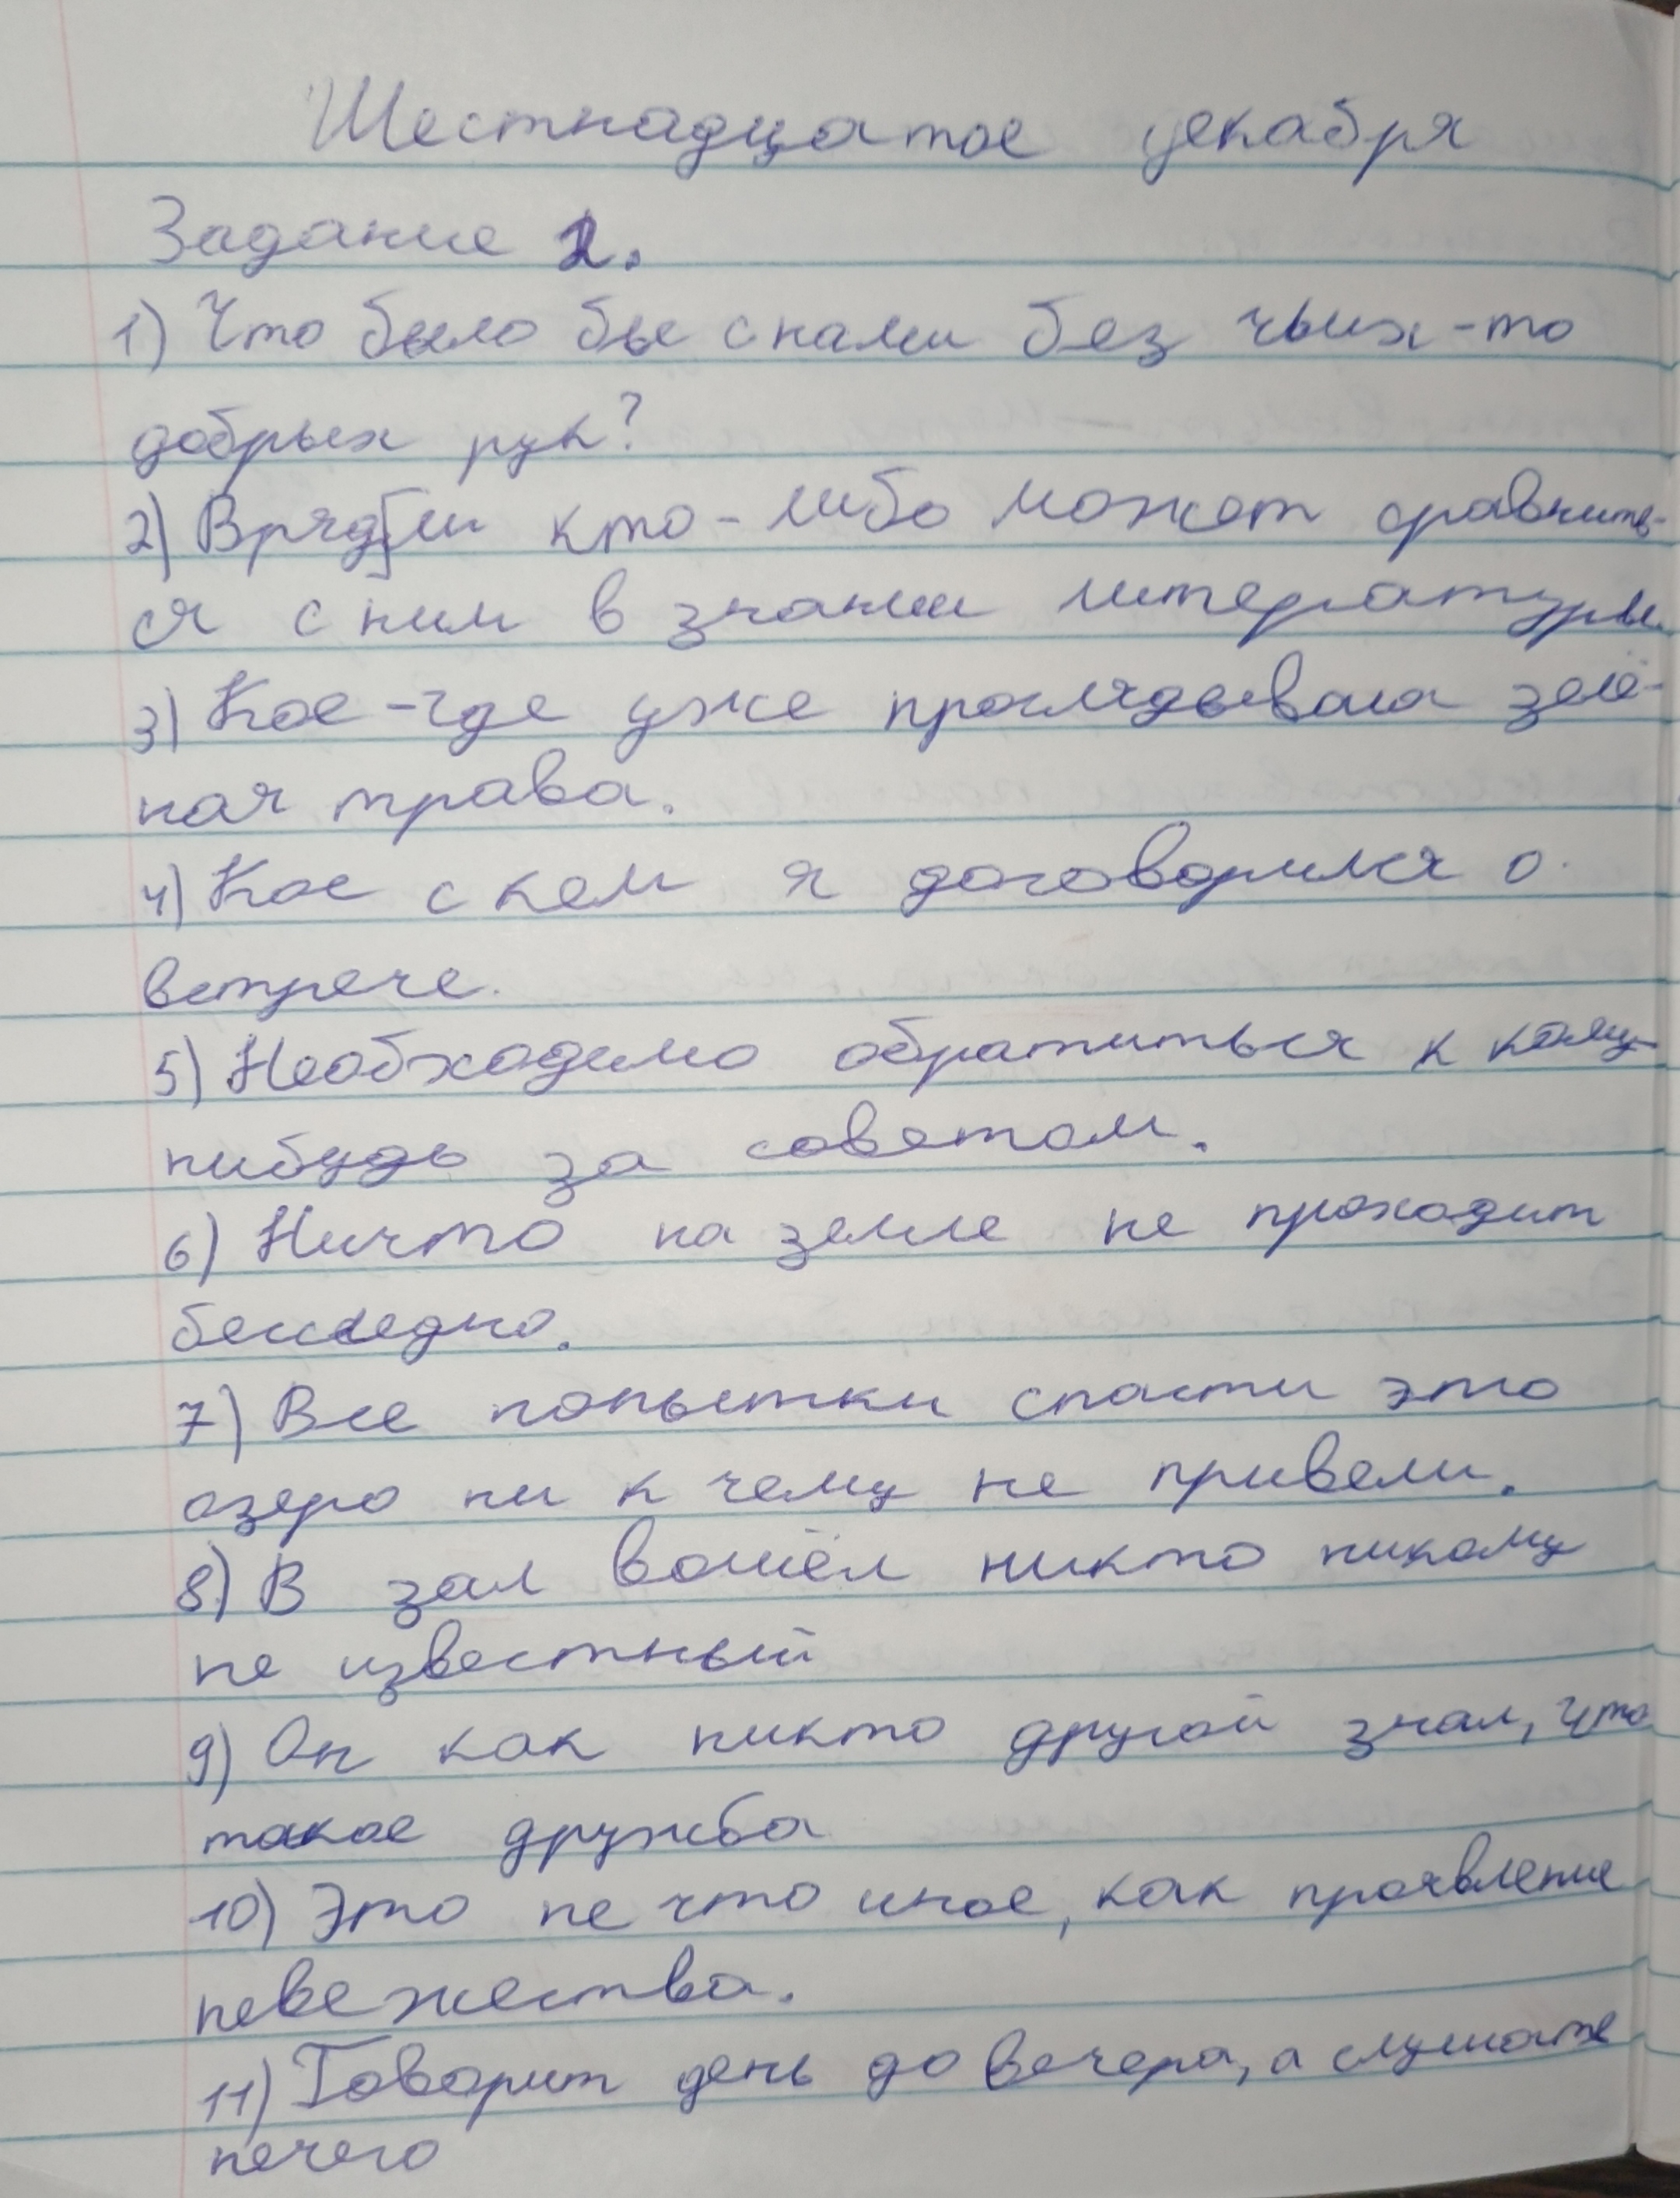 Шестнадцатое декабря
Задание 2.
1) Что было бы с нами без чьих-то
добрых рук?
2) Вряд[ли кто-либо может сравнить-
ся с ним в знании литературы.
3) Кое-где уже проглядывала зелё-
ная трава.
4) Кое с кем я договорился о
встрече.
5) Необходимо обратиться к кому-
нибудь за советом.
6) Ничто на земле не проходит
бесследно.
7) Все попытки спасти это
озеро ни к чему не привели.
8) В зал вошёл никто никому
не известный
9) Он как никто другой знал, что
такое дружба
10) Это не что иное, как проявление
невежества.
11) Говорит день до вечера, а слушать
нечего